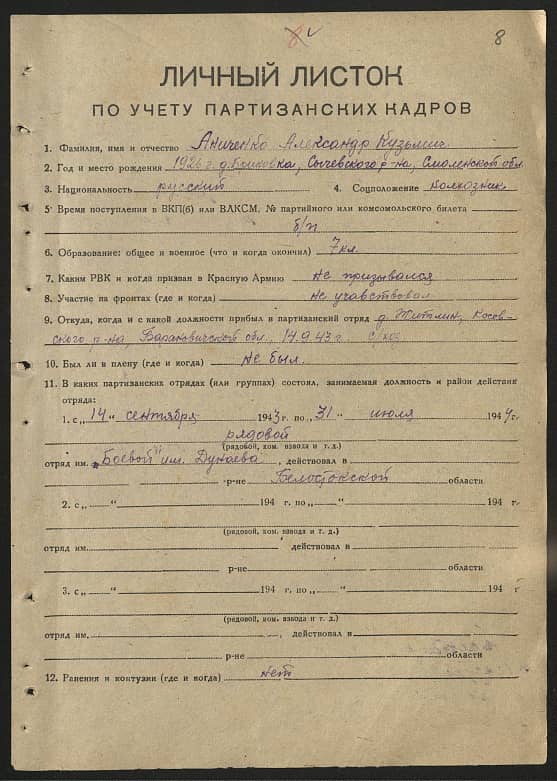 8 8
ЛИЧНЫЙ ЛИСТОК
ПО УЧЕТУ ПАРТИЗАНСКИХ КАДРОВ
1. Фамилия, имя и отчество Аниченко Александр Кузьмич
2. Год и место рождения 1926 г. д. Сычевского р-на, Смоленской обл.
3. Национальность русский 4. Соцположение колхозник
5 Время поступления в ВКП(б) или ВЛКСМ, № партийного или комсомольского билета
б/п
6. Образование: общее и военное (что и когда окончил) 7 кл.
7. Каким РВК и когда призван в Красную Армию не призывался
8. Участие на фронтах (где и когда) не учавствовал
9. Откуда, когда и с какой должности прибыл в партизанский отряд д. Житлин, Косов-
ского р-на, Барановичской обл., 14.9.43 г.
10. Был ли в плену (где и когда) не был.
11. В каких партизанских отрядах (или группах) состоял, занимаемая должность и район действия
отряда:
1. с „14“ сентября 1943 г. по „31“ июля 1944 г.
рядовой
(рядовой, ком. взвода и т. д.)
отряд им. „Боевой“ им. Дунаева, действовал в
р-не Белостокской области
2. с „ “ 194 г. по „ “ 194 г.
(рядовой, ком. взвода и т. д.)
отряд им. действовал в
р-не области
3. с „ “ 194 г. по „ “ 194 г
(рядовой, ком. взвода и т. д.)
отряд им. , действовал в
р-не области
12. Ранения и контузии (где и когда) нет